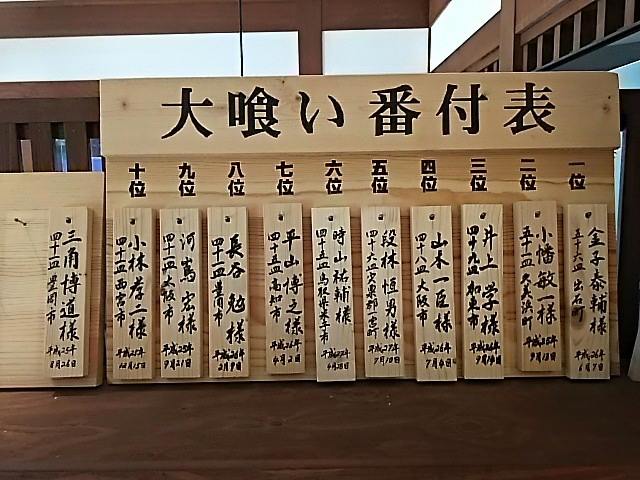 大喰い番付表
一位
金子泰輔様
五十六皿 出石町
6月7日
二位
小幡敏一様
五十一皿 久美浜町
平成25年
9月18日
三位
井上学様
四十九皿 和束市
平成26年
9月14日
四位
山本一臣様
四十八皿 大阪市
平成26年
7月4日
五位
段林恒男様
四十六皿 宍粟郡一宮町
平成27年
7月12日
六位
時山祐輔様
四十五皿 鳥取県米子市
平成27年
4月28日
七位
平山博之様
四十五皿 高知市
平成26年
4月2日
八位
長谷勉様
四十二皿 豊岡市
平成26年
2月9日
九位
河嶌宏様
四十二皿 大阪市
平成25年
9月21日
十位
小林孝二様
四十一皿 西宮市
平成25年
12月15日
三角博道様
四十一皿 豊岡市
平成25年
8月26日